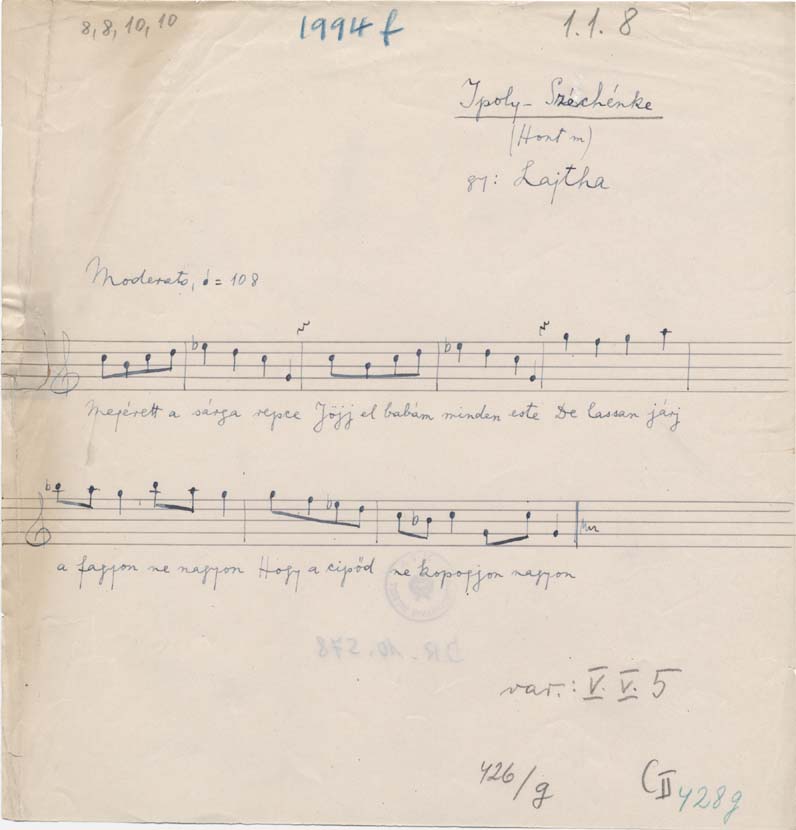 8, 8, 10, 10
1994 f
1.1.8
Ipoly-Széchénke
(Hont m)
gy: Lajtha
Moderato, ♩= 108
Megérett a sárga repce Jöjj el babám minden este De lassan járj
a fagyon ne nagyon Hogy a cipőd ne kopogjon nagyon
DR. 10.578
var.: V. V. 5
426/g
C II 428g